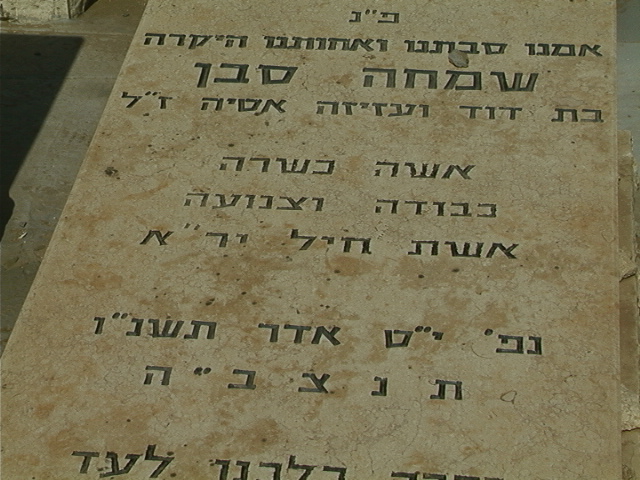 פ"נ
אמנו סבתנו ואחותנו היקרה
שמחה סבן
בת דוד ועזיזה אסיה ז"ל
אשה כשרה
כבודה וצנועה
אשת חיל יר"א
נפ' י"ט אדר תשנ"ו
ת נ צ ב "ה
בלבנו לעד